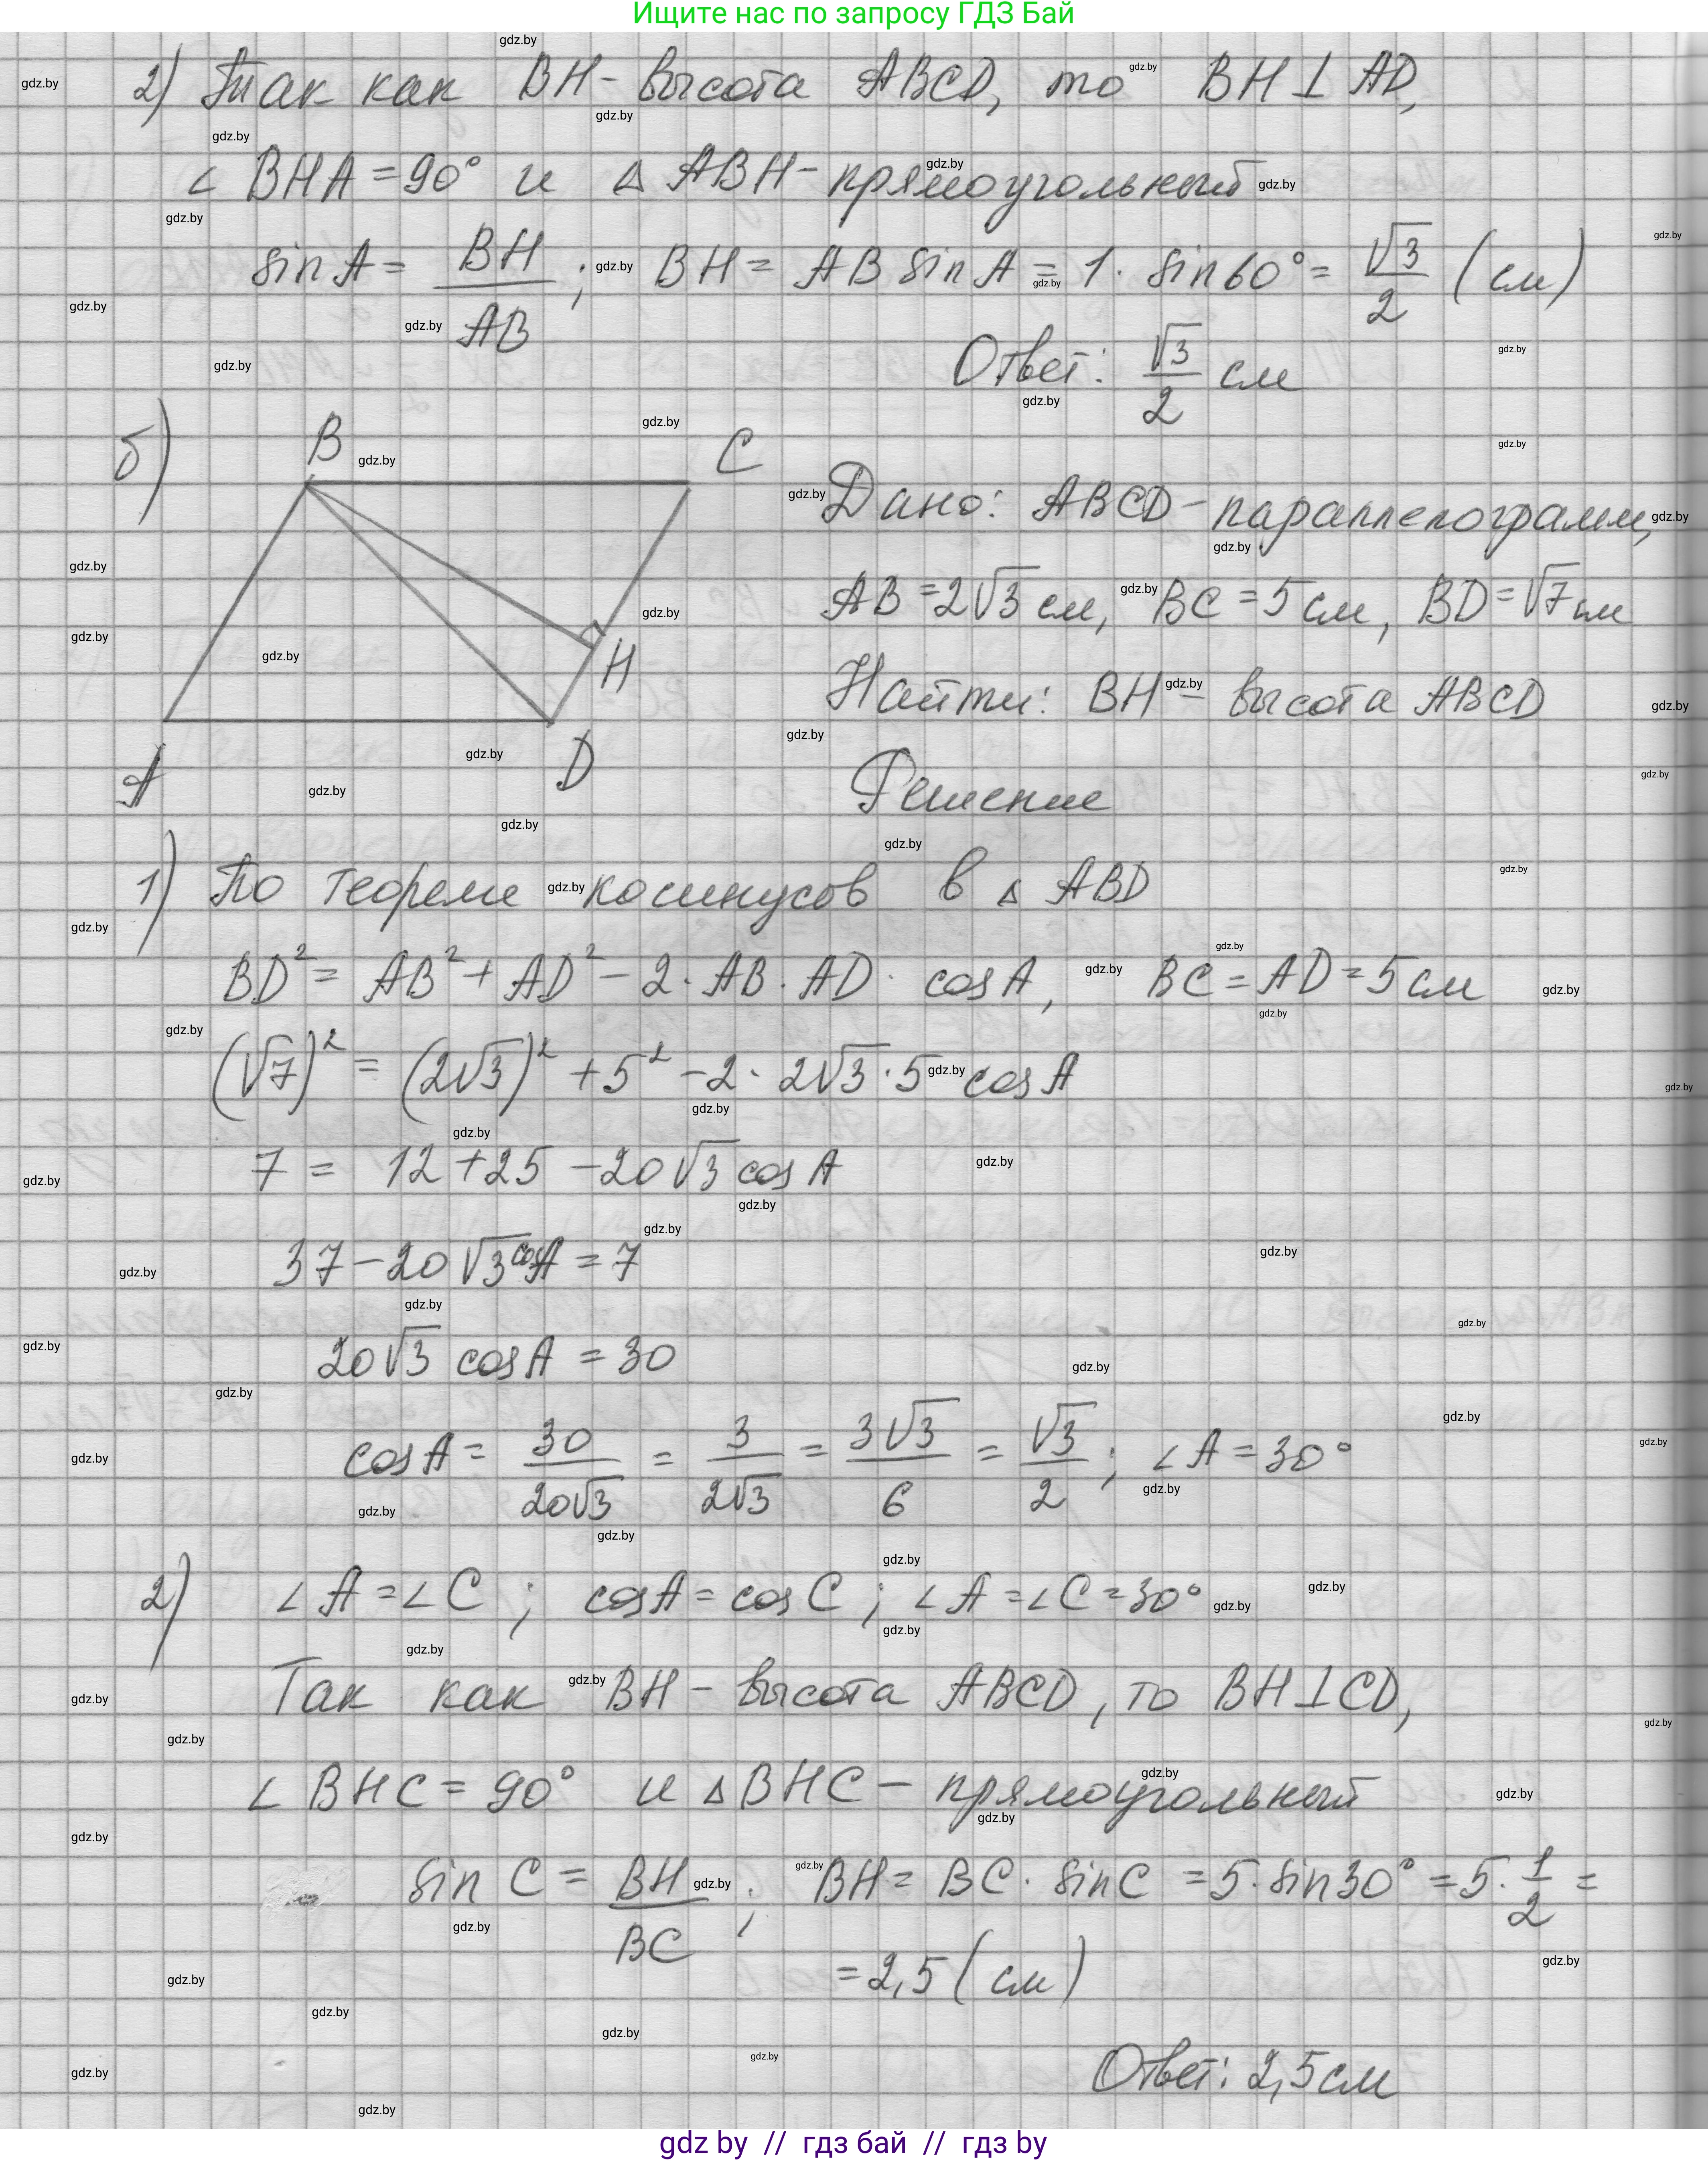 Ищите нас по запросу ГДЗ Бай
2) Так как BH - высота ABCD, то BH ⊥ AD,
∠ BHA = 90° и △ ABH - прямоугольный
sin A = BH/AB ; BH = AB sin A = 1 · sin 60° = √3/2 (см)
Ответ: √3/2 см
б)
B
C
H
A
D
Дано: ABCD - параллелограмм,
AB = 2√3 см, BC = 5 см, BD = √7 см
Найти: BH - высота ABCD
Решение
1) По теореме косинусов в △ ABD
BD² = AB² + AD² - 2 · AB · AD · cos A, BC = AD = 5 см
(√7)² = (2√3)² + 5² - 2 · 2√3 · 5 cos A
7 = 12 + 25 - 20√3 cos A
37 - 20√3 cos A = 7
20√3 cos A = 30
cos A = 30/20√3 = 3/2√3 = 3√3/6 = √3/2 ; ∠ A = 30°
2) ∠ A = ∠ C ; cos A = cos C ; ∠ A = ∠ C = 30°
Так как BH - высота ABCD, то BH ⊥ CD,
∠ BHC = 90° и △ BHC - прямоугольный
sin C = BH/BC ; BH = BC · sin C = 5 · sin 30° = 5 · 1/2 =
= 2,5 (см)
Ответ: 2,5 см
gdz by // гдз бай // гдз by